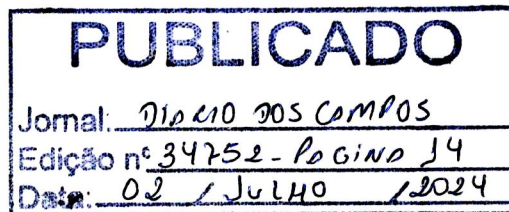 PUBLICADO
Jornal: DIARIO DOS CAMPOS
Edição nº 34752 - PAGINA 14
Data: 02 / JULHO / 2024